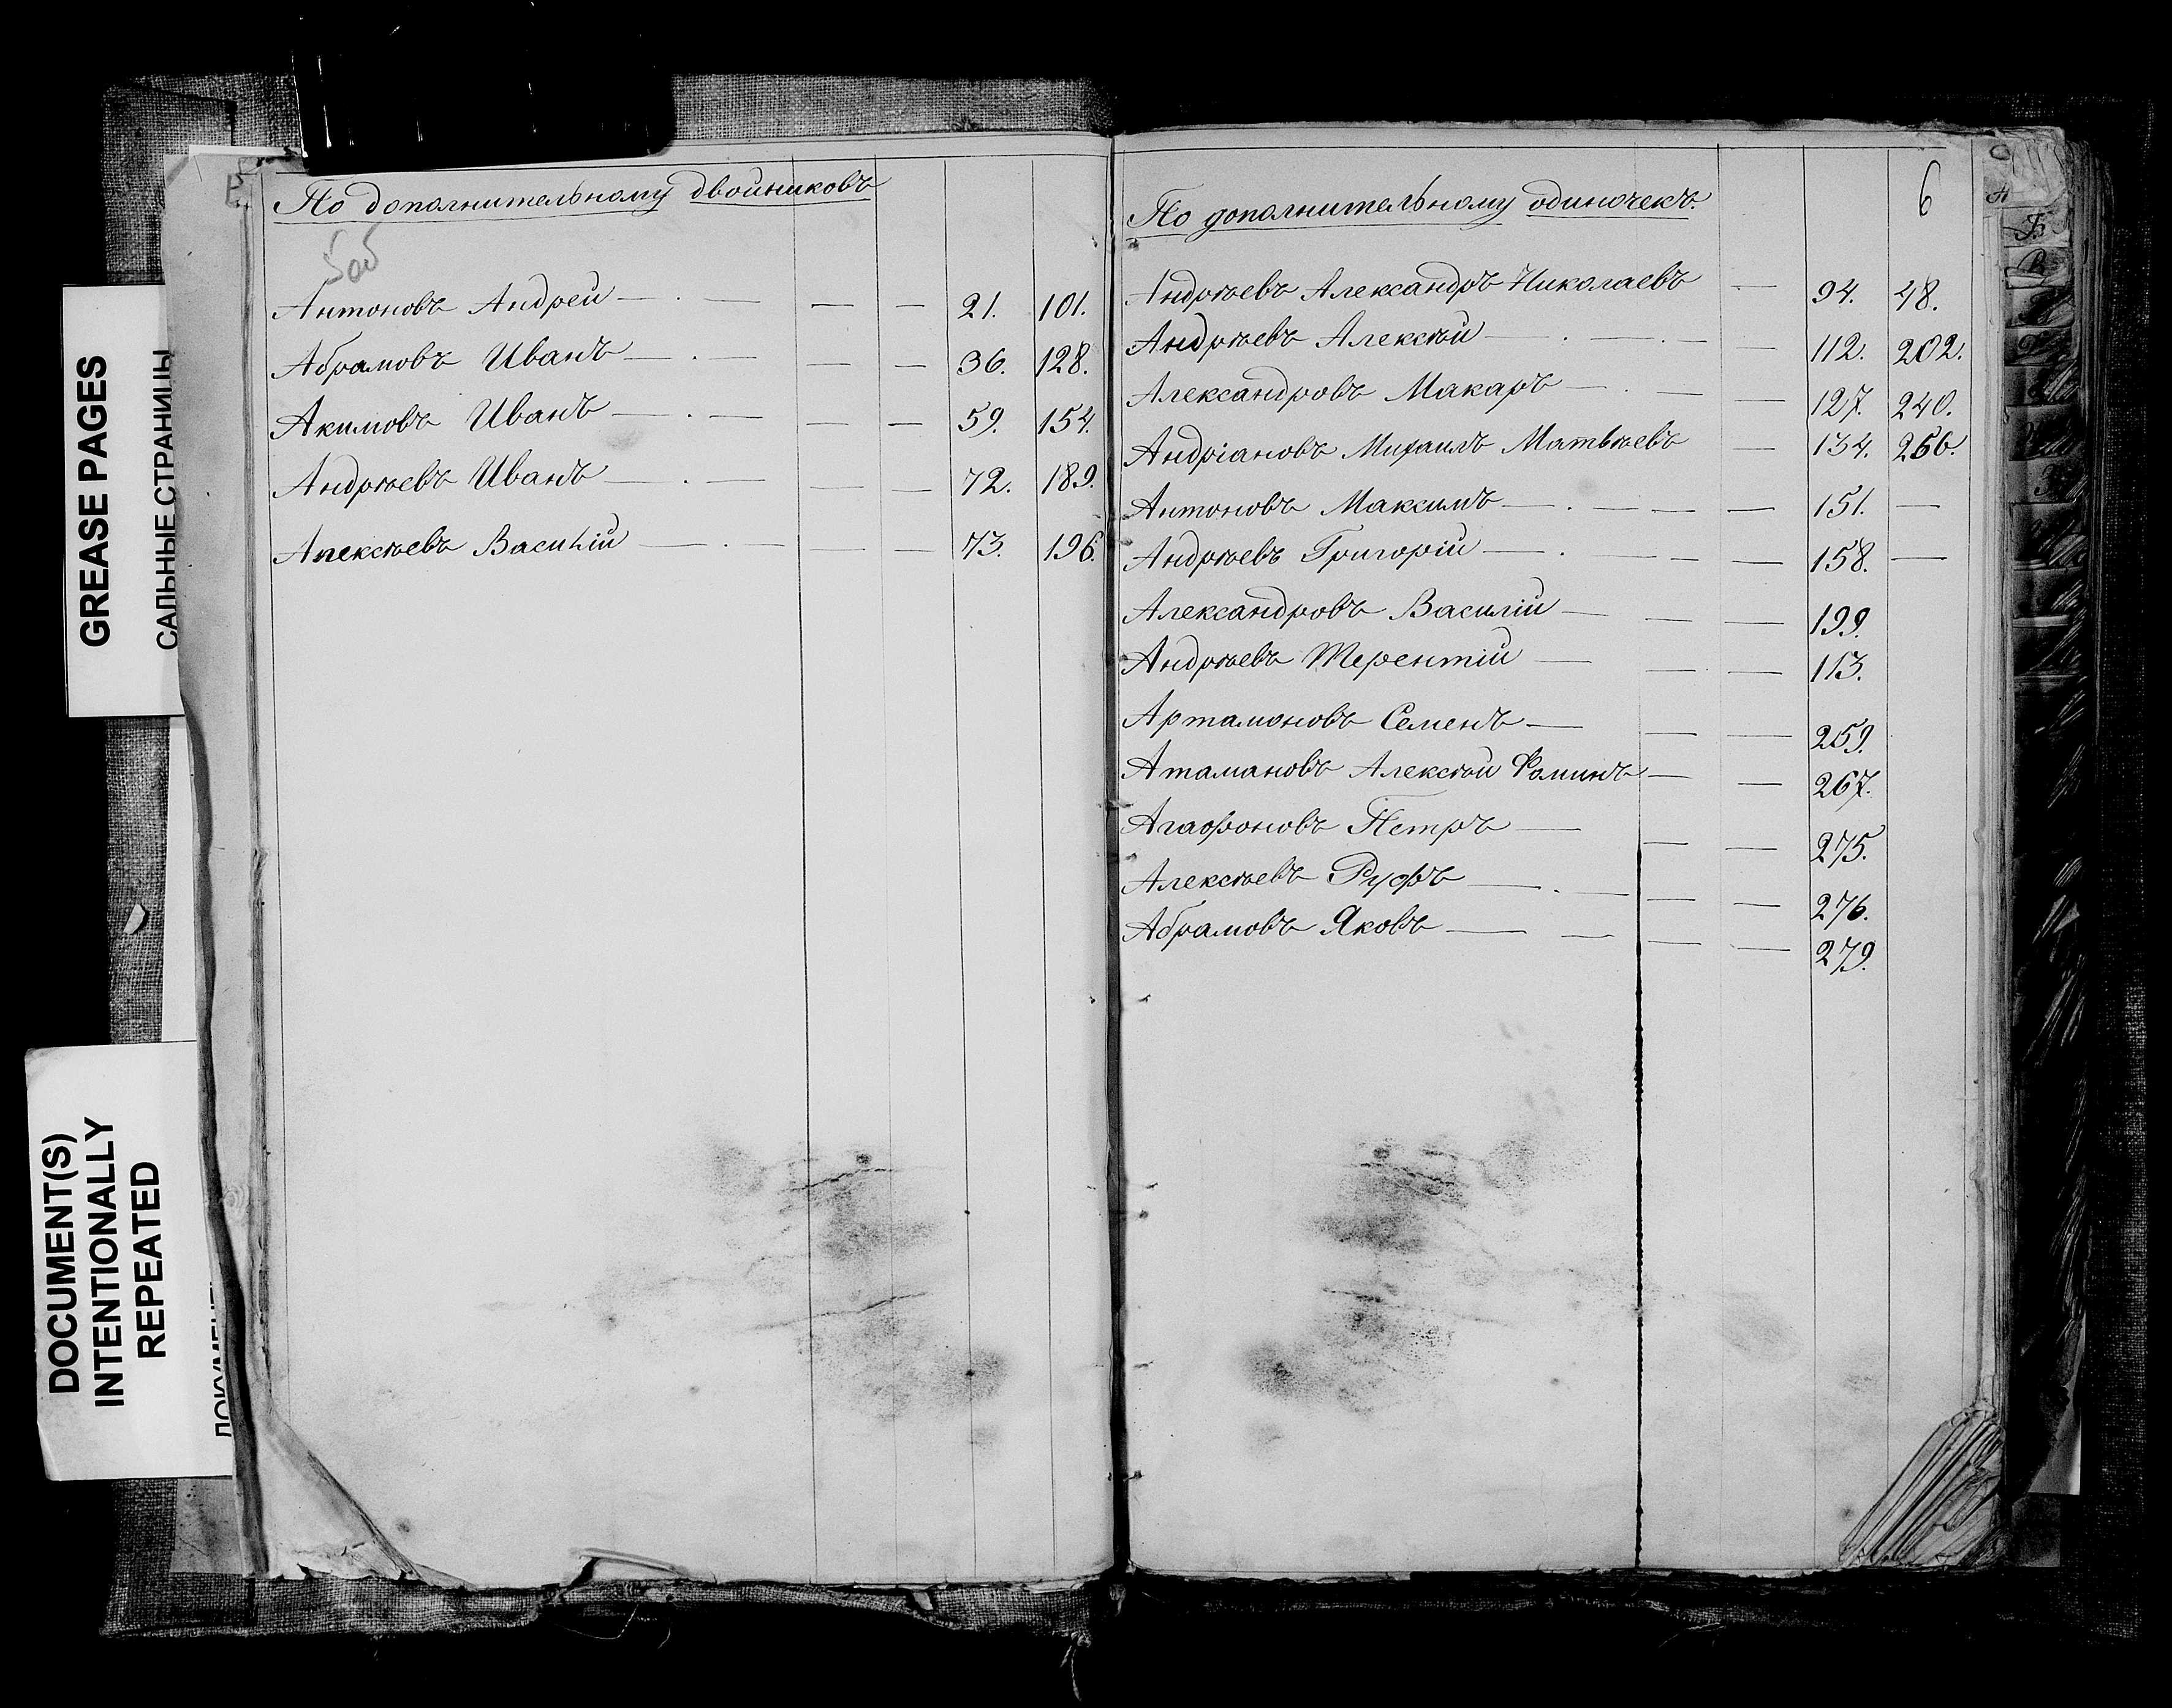 GREASE PAGES
САЛЬНЫЕ СТРАНИЦЫ
DOCUMENT(S)
INTENTIONALLY
REPEATED
По дополнительному двойниковъ
5об
Антоновъ Андрей — . — — — 21. 101.
Абрамовъ Иванъ — . — — — 36. 128.
Акимовъ Иванъ — . — — — 59. 154.
Андрѣевъ Иванъ — . — — — 72. 189.
Алексѣевъ Василій — . — — — 73. 196.
6
По дополнительному одиночекъ.
Андрѣевъ Александръ Николаевъ — 94. 48.
Андрѣевъ Алексѣй — . — . — — 112. 202.
Александровъ Макаръ — . — — 127. 240.
Андріановъ Михаилъ Матвѣевъ — 134. 266.
Антоновъ Максимъ — . — — — 151. —
Андрѣевъ Григорій — . — — — 158. —
Александровъ Василій — — — 199.
Андрѣевъ Терентій — — — 113.
Артамоновъ Семенъ — — — 259.
Атамановъ Алексѣй Фоминъ — — 267.
Агафоновъ Петръ — — — 275.
Алексѣевъ Руфъ — . — — — 276.
Абрамовъ Яковъ — — — — 279.